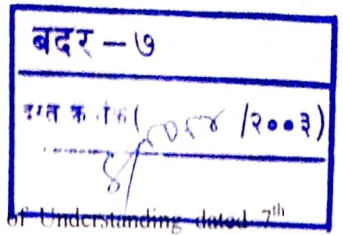 बदर - ७
दस्त क्र (५००४ /२००३)
of Understanding dated 7th